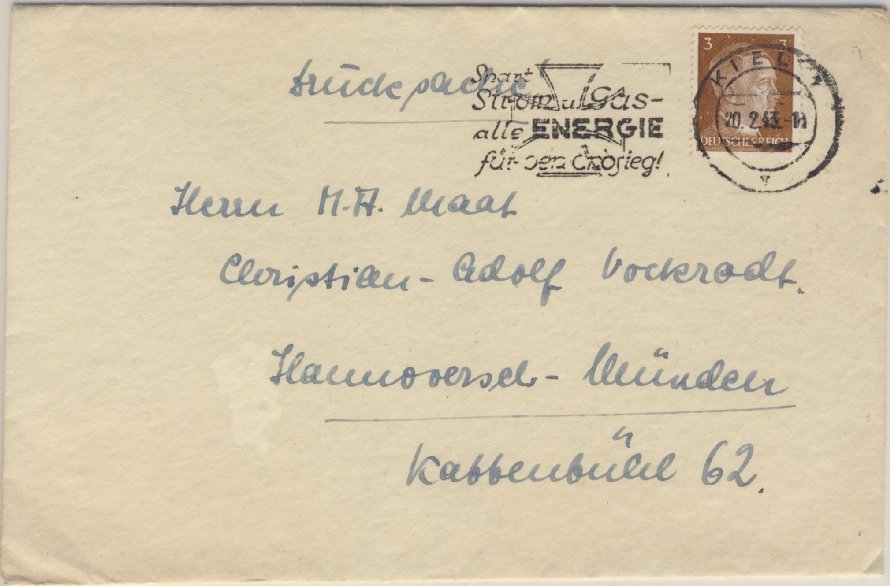 Drucksache
Spart
Strom u. Gas-
alle ENERGIE
für den Endsieg!
3 3
DEUTSCHES REICH
KIEL 1
20. 2.43.-
Herrn M.A. Maat
Christian-Adolf Vockrodt.
Hannoversch-Münden
Kattenbühl 62.